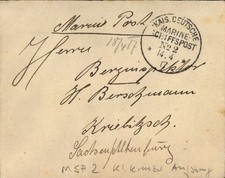 Marine Post
KAIS. DEUTSCHE
MARINE-
SCHIFFSPOST
No 2
14/4
17
Herrn
Berginspektor
H. Berschmann
Kriebitzsch
Sachsen/Altenburg
MSP 2 Kl. Kreuzer